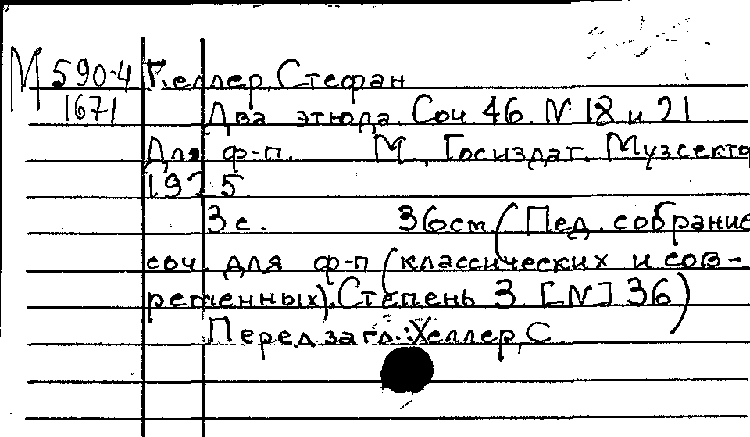 М 590-4 Геллер, Стефан
1671 Два этюда. Соч 46. N 18 и 21
Для ф-п. М., Госиздат. Музсекто
1925
3 с. 36 см (Пед. собрание
соч. для ф-п (классических и сов-
ременных). Степень 3. [N] 36)
Перед загл.: Хеллер, С.